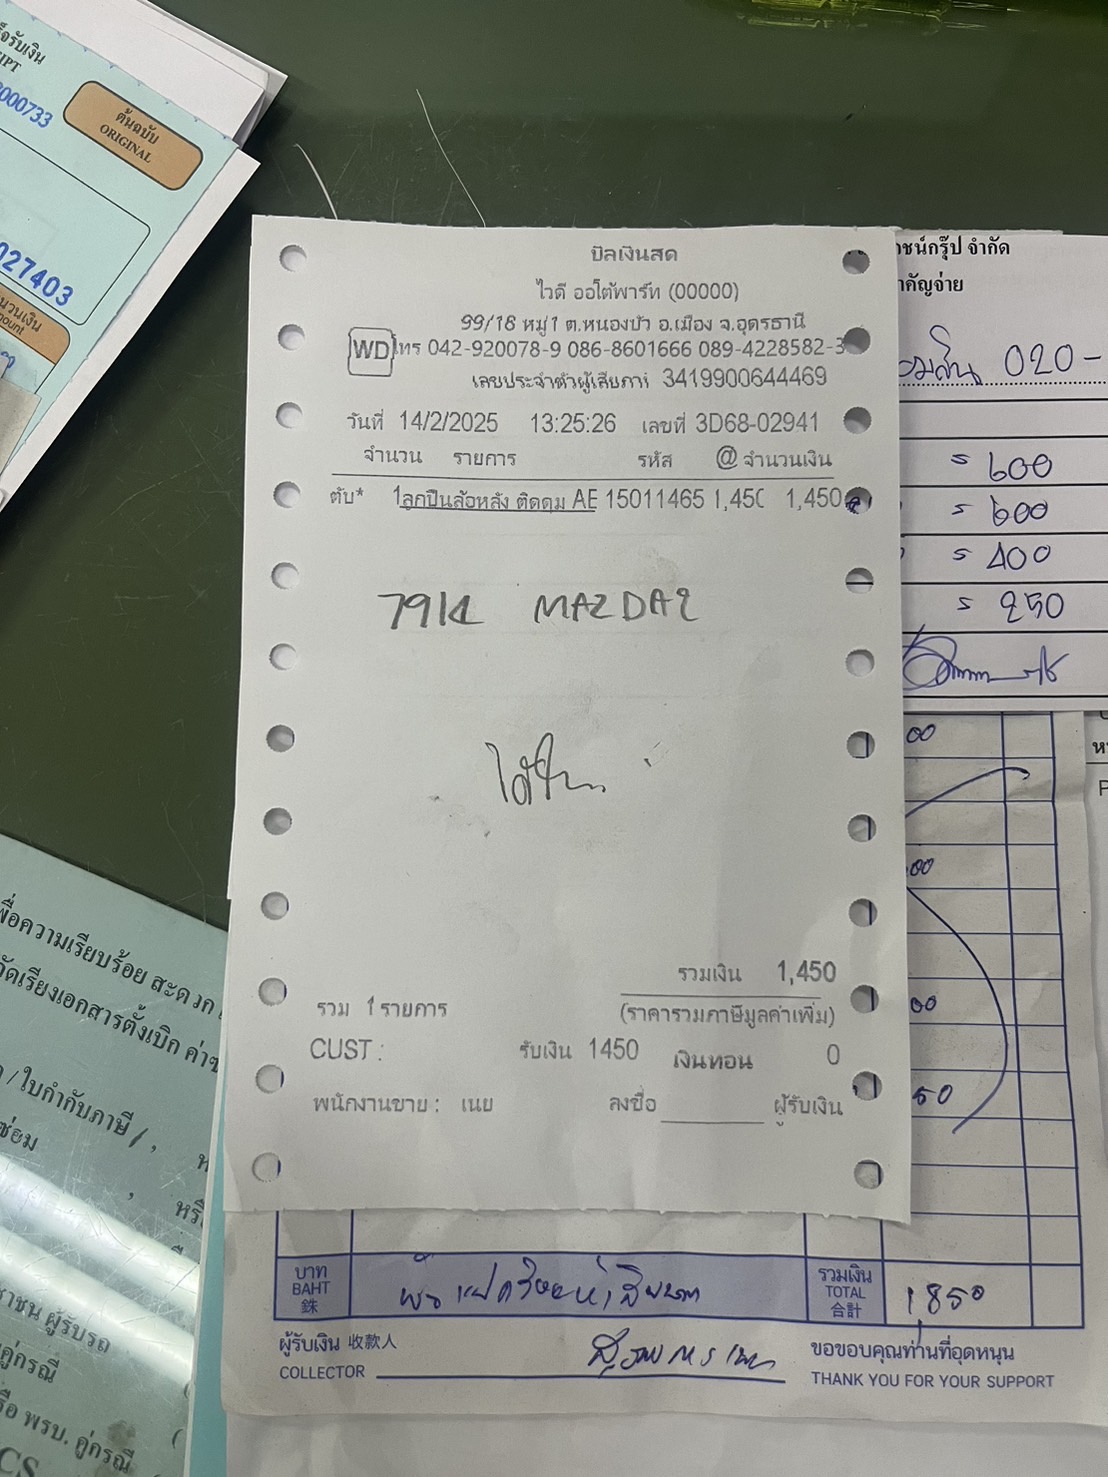 จรับเงิน
IPT
000733
ต้นฉบับ
ORIGINAL
027403
นวนเงิน
ount
บิลเงินสด
ไวดี ออโต้พาร์ท (00000)
99/18 หมู่1 ต.หนองบัว อ.เมือง จ.อุดรธานี
WD โทร 042-920078-9 086-8601666 089-4228582-3
เลขประจำตัวผู้เสียภาษี 3419900644469
วันที่ 14/2/2025 13:25:26 เลขที่ 3D68-02941
จำนวน รายการ รหัส @ จำนวนเงิน
ตับ* 1ลูกปืนล้อหลัง ติดดุม AE 15011465 1,450 1,450
MAZDA2
ได้รับ
รวมเงิน 1,450
รวม 1 รายการ (ราคารวมภาษีมูลค่าเพิ่ม)
CUST : รับเงิน 1450 เงินทอน 0
พนักงานขาย : เนย ลงชื่อ ผู้รับเงิน
ชน์กรุ๊ป จำกัด
คัญจ่าย
020-
600
600
400
250
00
00
00
50
บาท
BAHT
銖
รวมเงิน
TOTAL
合計
1850
ผู้รับเงิน 收款人
COLLECTOR
ขอขอบคุณท่านที่อุดหนุน
THANK YOU FOR YOUR SUPPORT
พื่อความเรียบร้อย สะดวก
จัดเรียงเอกสารตั้งเบิก ค่าซ
/ ใบกำกับภาษี / ,
ซ่อม
หรื
าชน ผู้รับรถ
คู่กรณี
รือ พรบ. คู่กรณี
CS